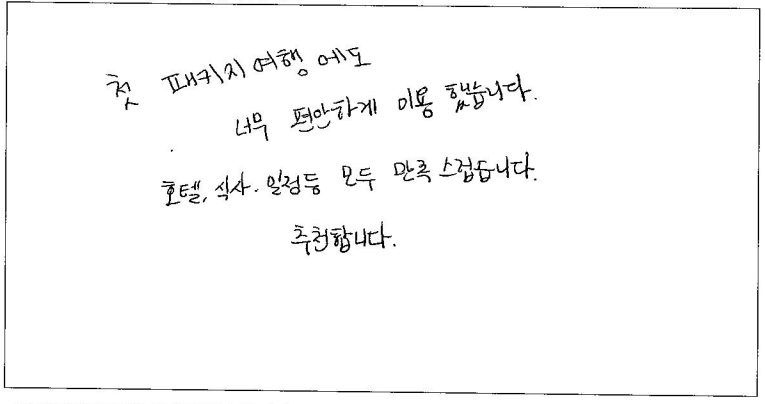 첫 패키지여행에도
너무 편안하게 이용 했습니다.
호텔, 식사. 일정등 모두 만족스럽습니다.
추천합니다.